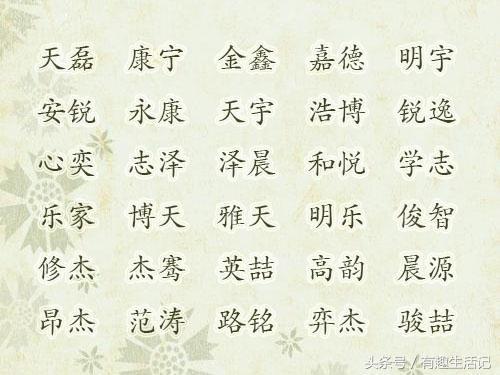 天磊 康宁 金鑫 嘉德 明宇
安锐 永康 天宇 浩博 锐逸
心奕 志泽 泽晨 和悦 学志
乐家 博天 雅天 明乐 俊智
修杰 杰骞 英喆 高韵 晨源
昂杰 范涛 路铭 弈杰 骏喆
头条号／有趣生活记